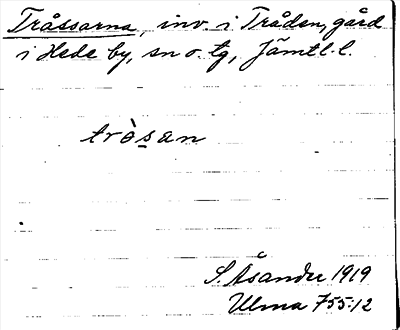 Tråssarna, inv. i Tråden, gård
i Hede by, sn o. tg, Jämtl. l.
tròsan
S. Åsander 1919
Ulma 755:12